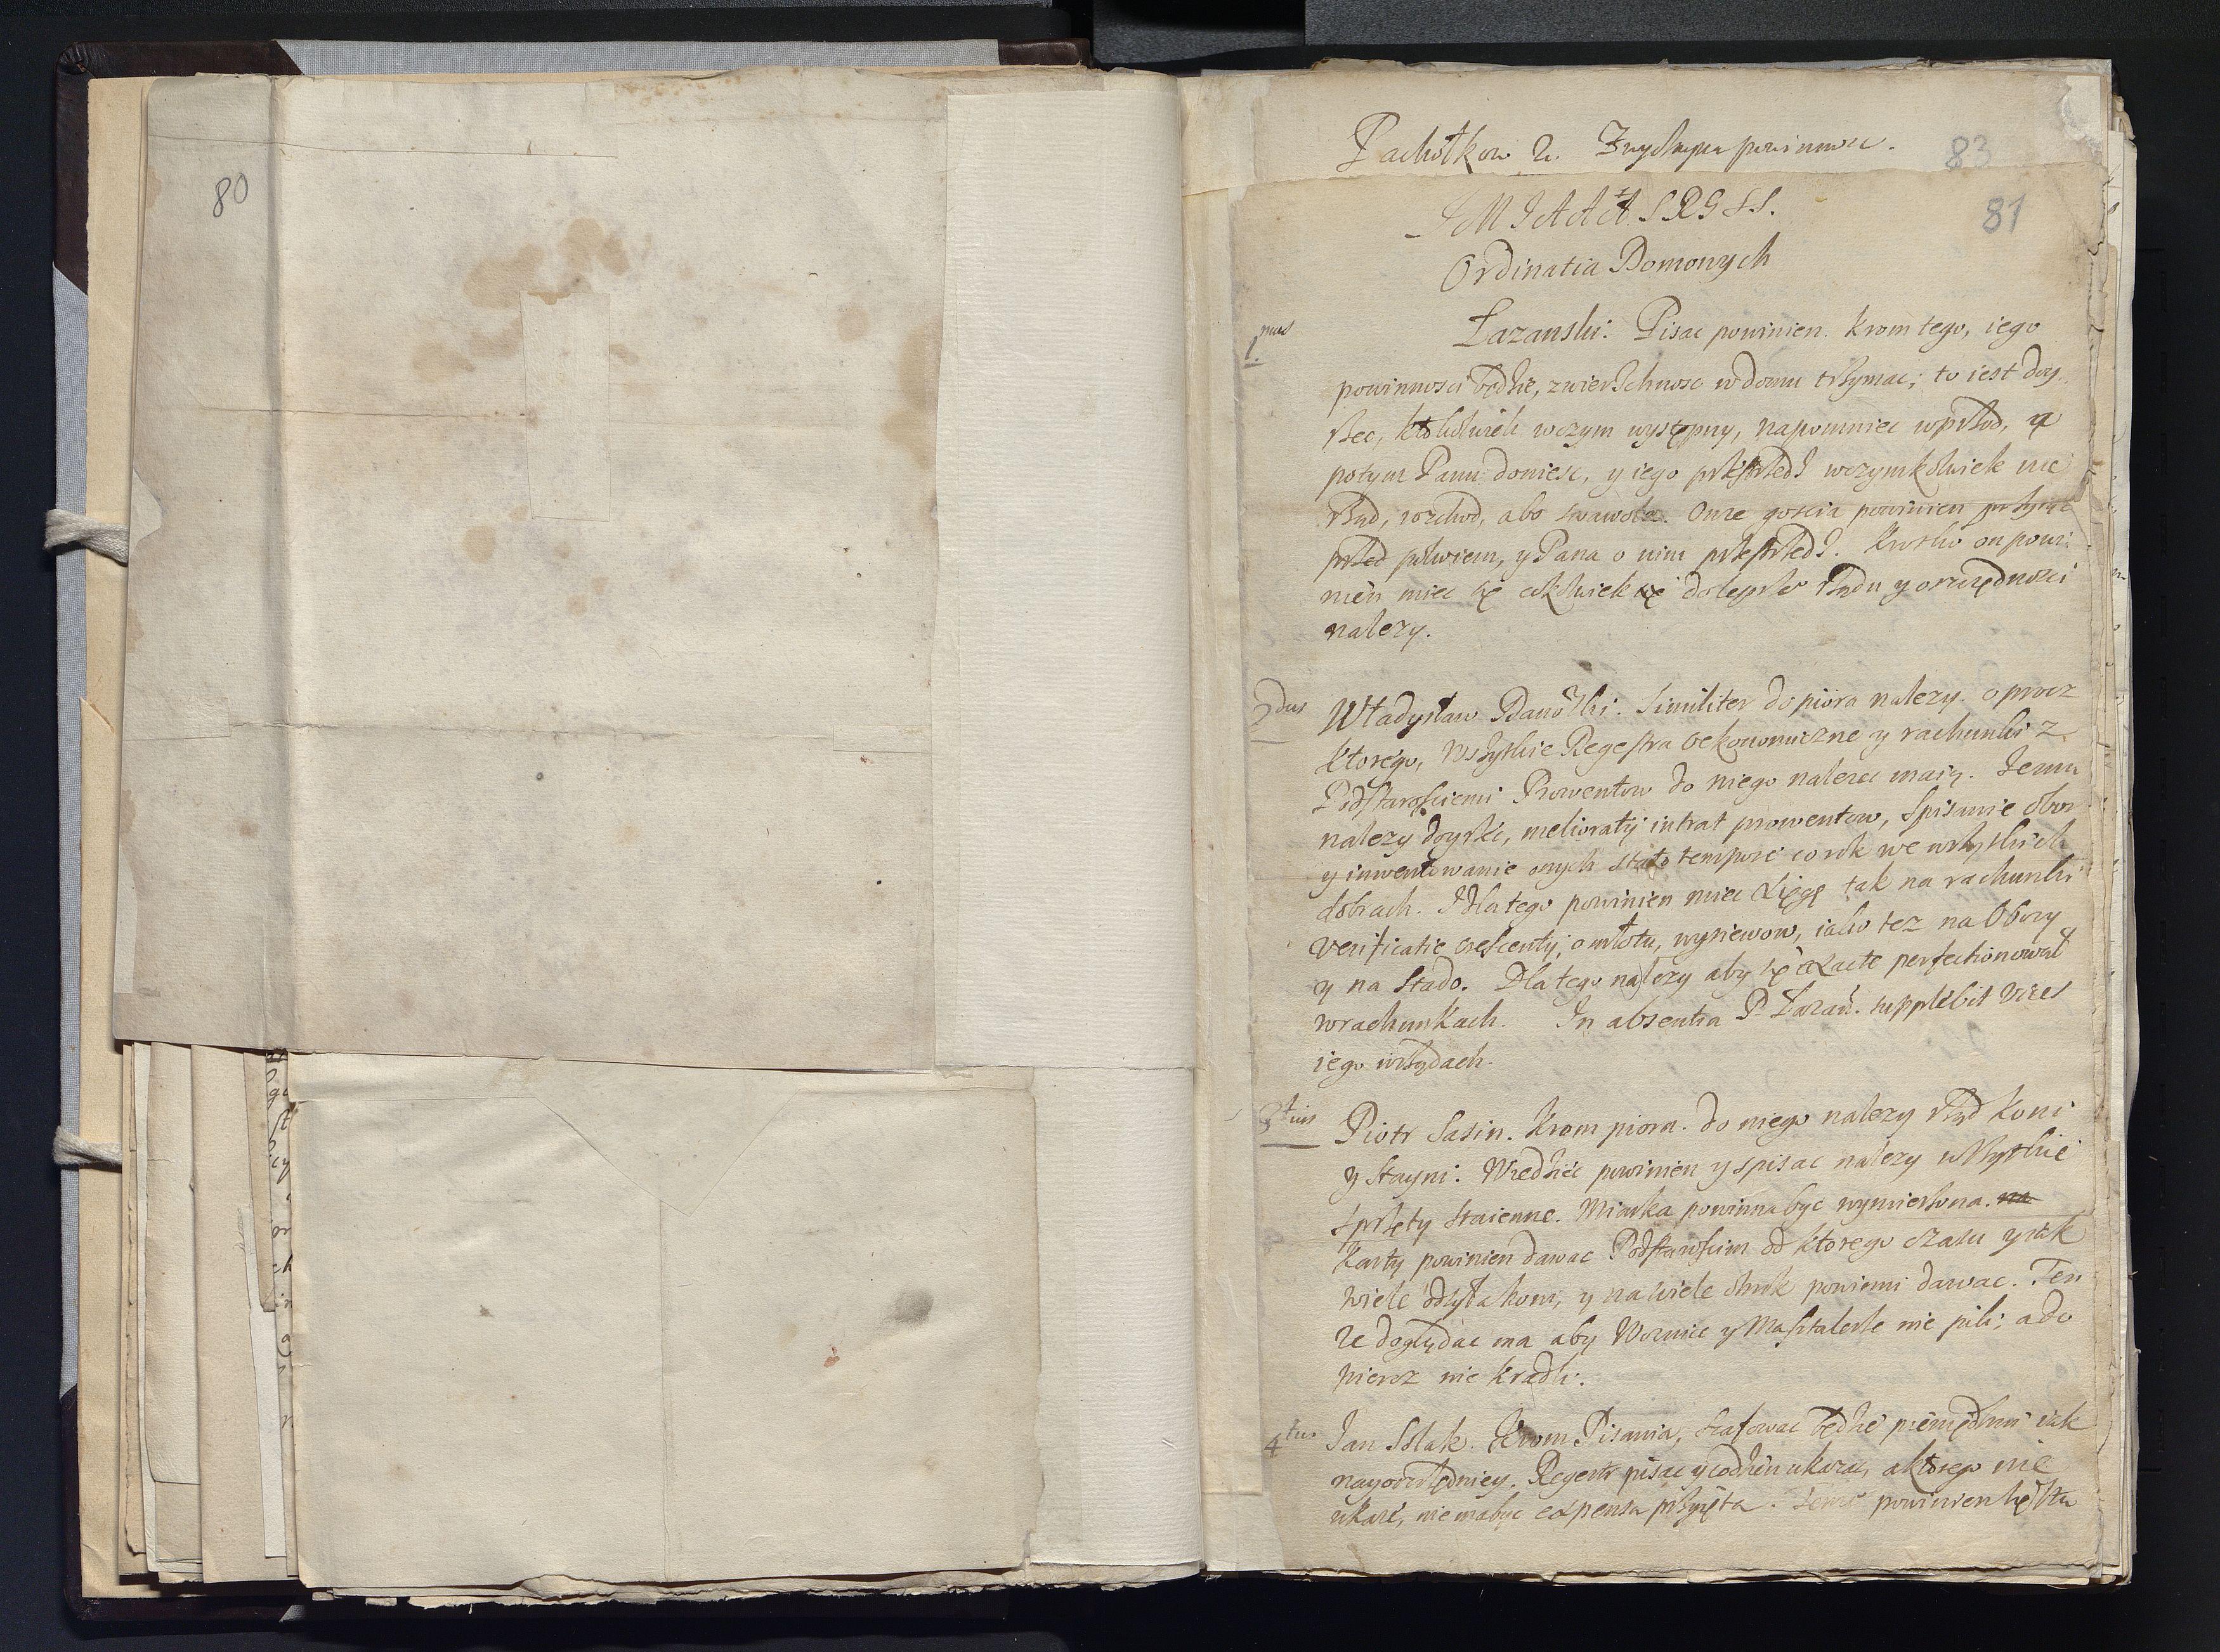 80
Pachołkow 2. powinnosc.
83
81
Ordinatia Domowych
1mus Łazanski. Pisac powinien. Krom tego, iego
powinnosci będzie, zwierzchnosc w domu trzymac; to iest doy-
rzec, ktokolwiek wczym występny, napomniec wprzod, a
potym Panu doniesc, y iego przestrzedz wczymkolwiek nie
rząd, rozchod, abo swawola. Onze goscia powinien przyiąc
przed , y Pana o nim przestrzedz. Krotko on powi-
nien miec się cokolwiek się do lepszo rządu y oszczędnosci
nalezy.
2dus Władysław . Similiter do piora nalezy. oprocz
ktorego, wszytkie Regestra oekonomiczne y rachunki z
Podstarosciemi Prowentow do niego nalezec maią. Temu
nalezy doyrzec, melioratij intrat prowentow, Spisanie obor
y inwentowanie onych stato tempore co rok we wszytkich
dobrach. Dla tego powinien miec Xięgę tak na rachunki
verificatie crescentij, omłotu, wysiewow, iako tez na Obory
y na Stado. Dla tego nalezy aby się exacte perfectionował
w rachunkach. In absentia P. Łazań. supplebit vices
iego wrządach.
3tius Piotr Sasin. Krom piora. do niego nalezy rząd koni
y Stayni. Wiedziec powinien y spisac nalezy wszytkie
sprzęty staienne. Miarka powinna byc wymierzona. na
karty powinien dawac Podstaroscim od ktorego czasu y iak
wiele odsyła koni, y na wiele powinni dawac. Ten
ze doglądac ma aby Woznice y Masztalerze nie pili; a do
pieroz nie kradli.
4tus Jan Solak. Krom Pisania, szafowac będzie pieniędzmi iak
nayoszczędniey. Regestr pisac y codzien ukazac, a ktorego nie
ukaze, nie ma byc expensa przyięta. powinien